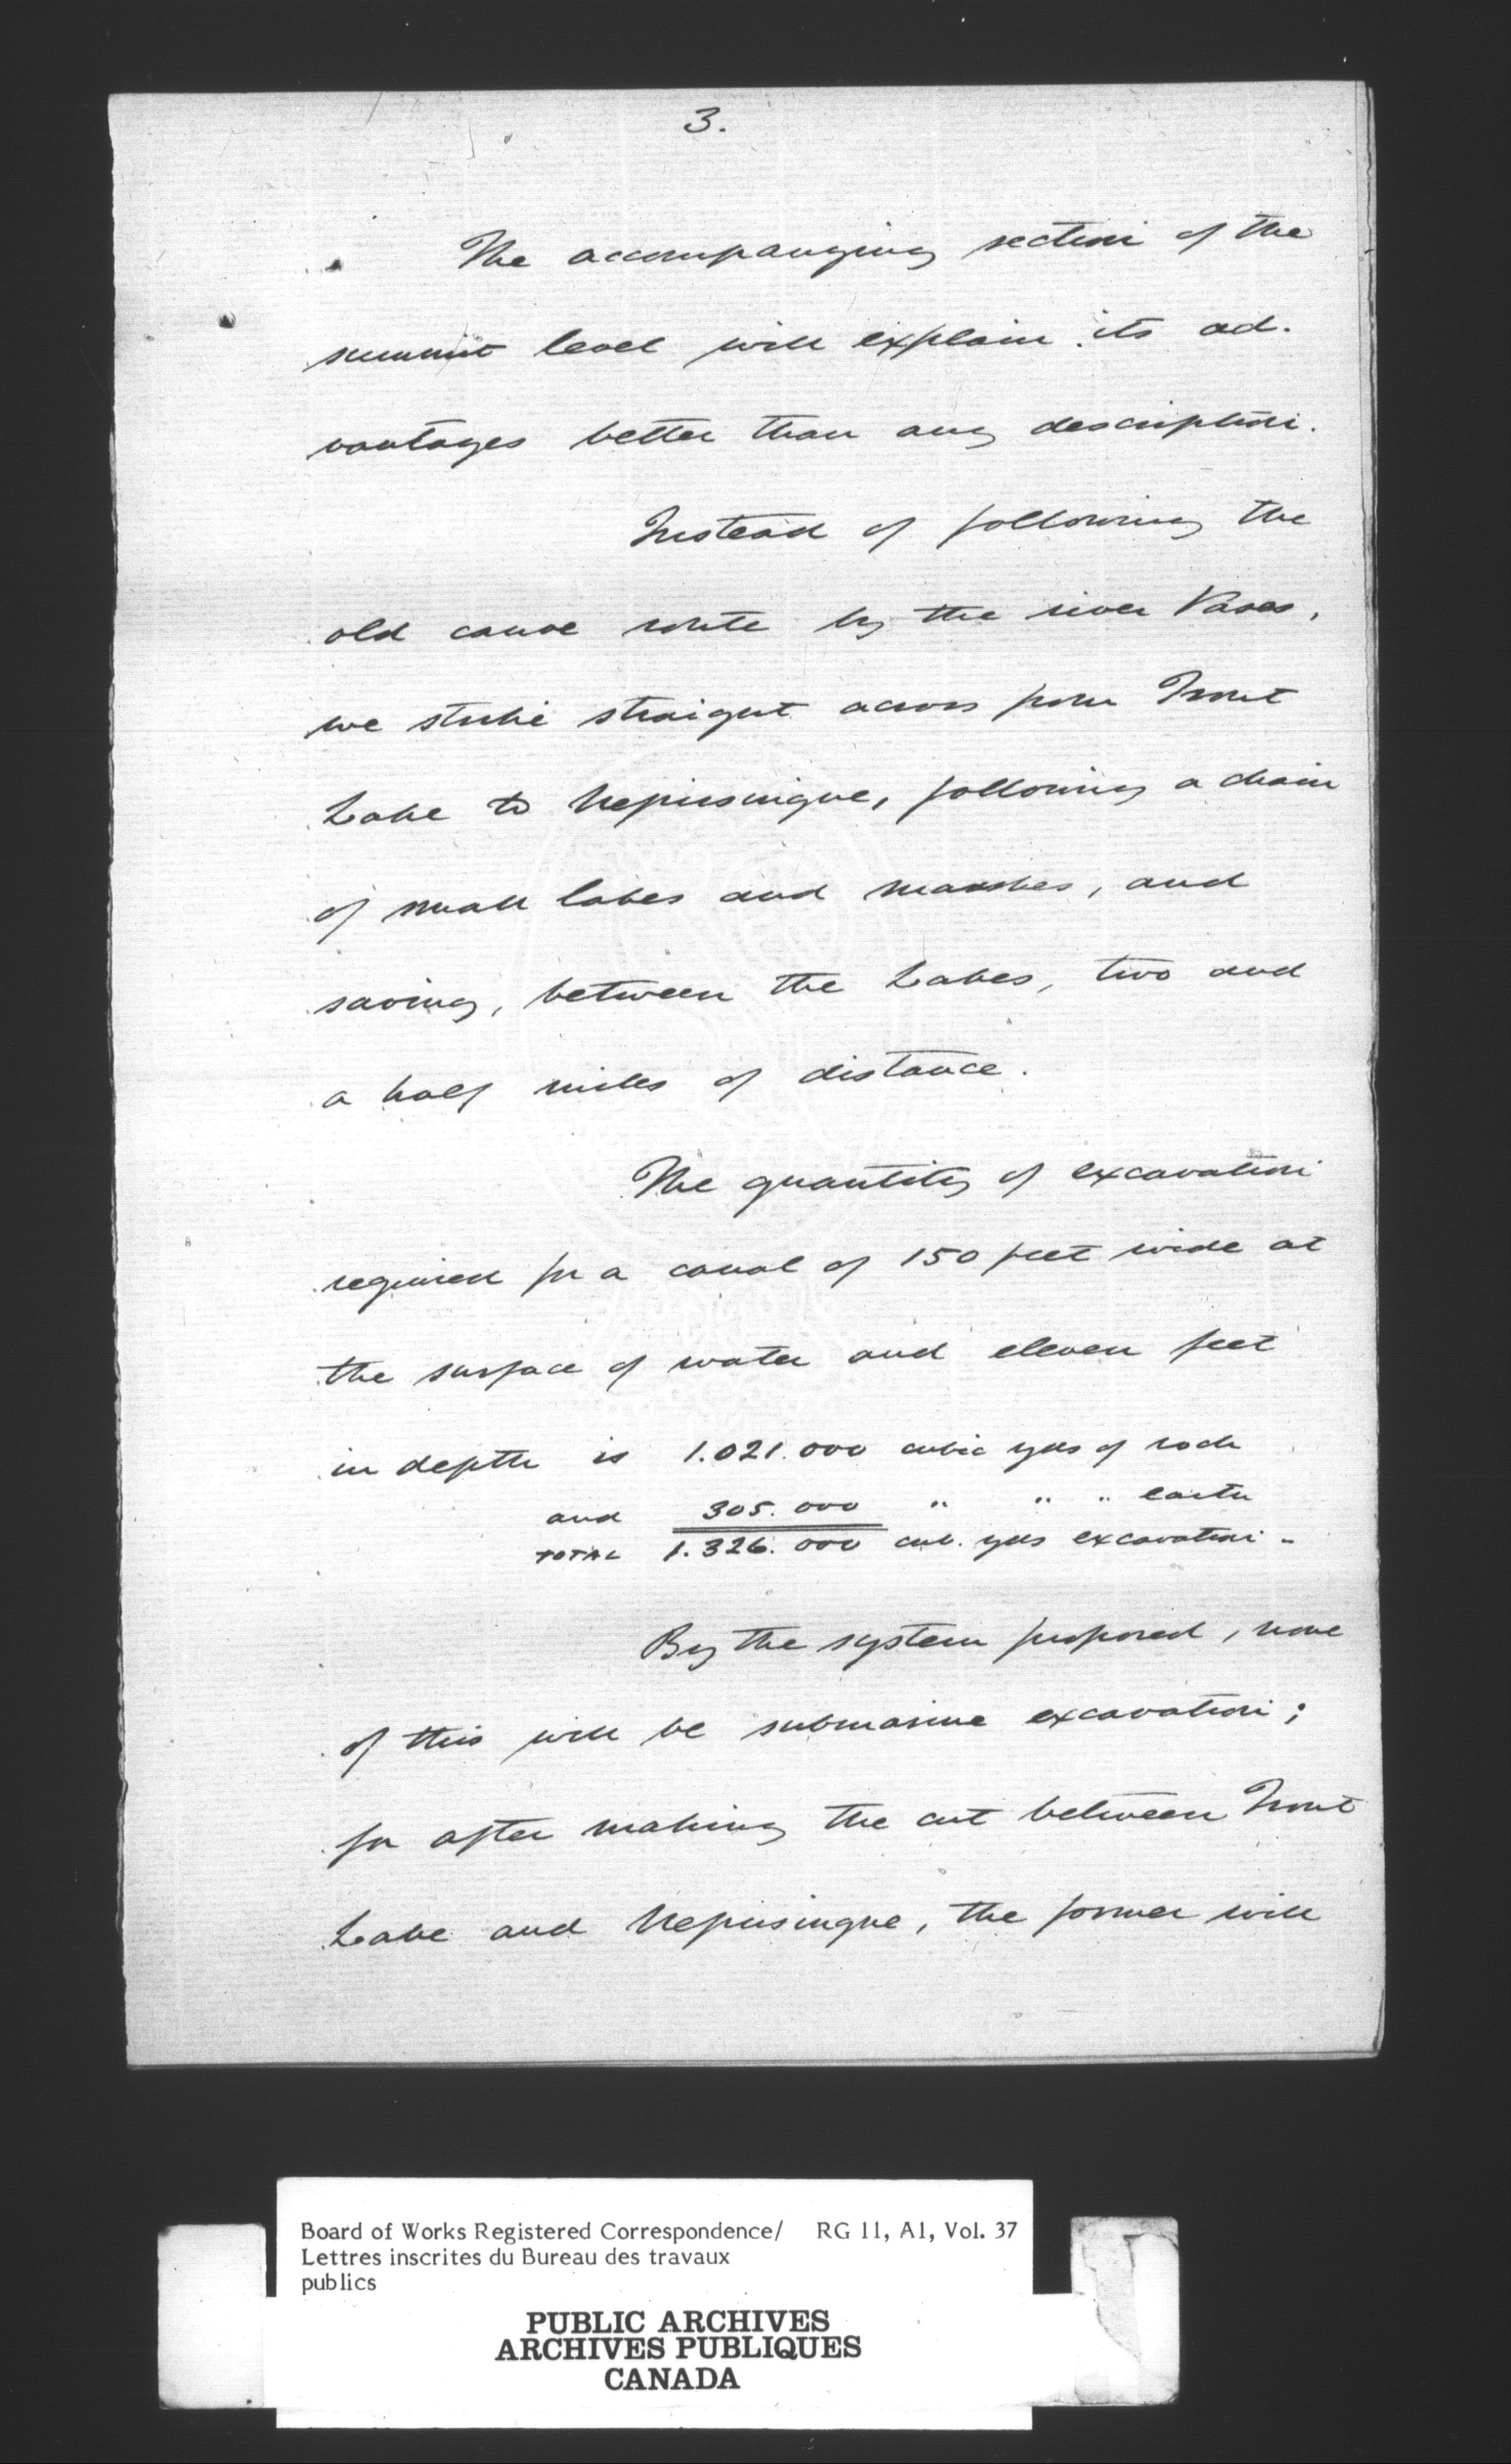 3.
The accompanying section of the
summit level will explain its ad-
vantages better than any description.
Instead of following the
old canoe route by the river Vases,
we strike straight across from Trout
Lake to Nepissingue, following a chain
of small lakes and marshes, and
saving, between the Lakes, two and
a half miles of distance.
The quantity of excavation
required for a canal of 150 feet wide at
the surface of water and eleven feet
in depth is 1.021.000 cubic yds of rock
and 305.000 " " " earth
TOTAL 1.326.000 cub. yds excavation -
By the system proposed, none
of this will be submarine excavation;
for after making the cut between Trout
Lake and Nepissingue, the former will
Board of Works Registered Correspondence/ RG 11, A1, Vol. 37
Lettres inscrites du Bureau des travaux
publics
PUBLIC ARCHIVES
ARCHIVES PUBLIQUES
CANADA